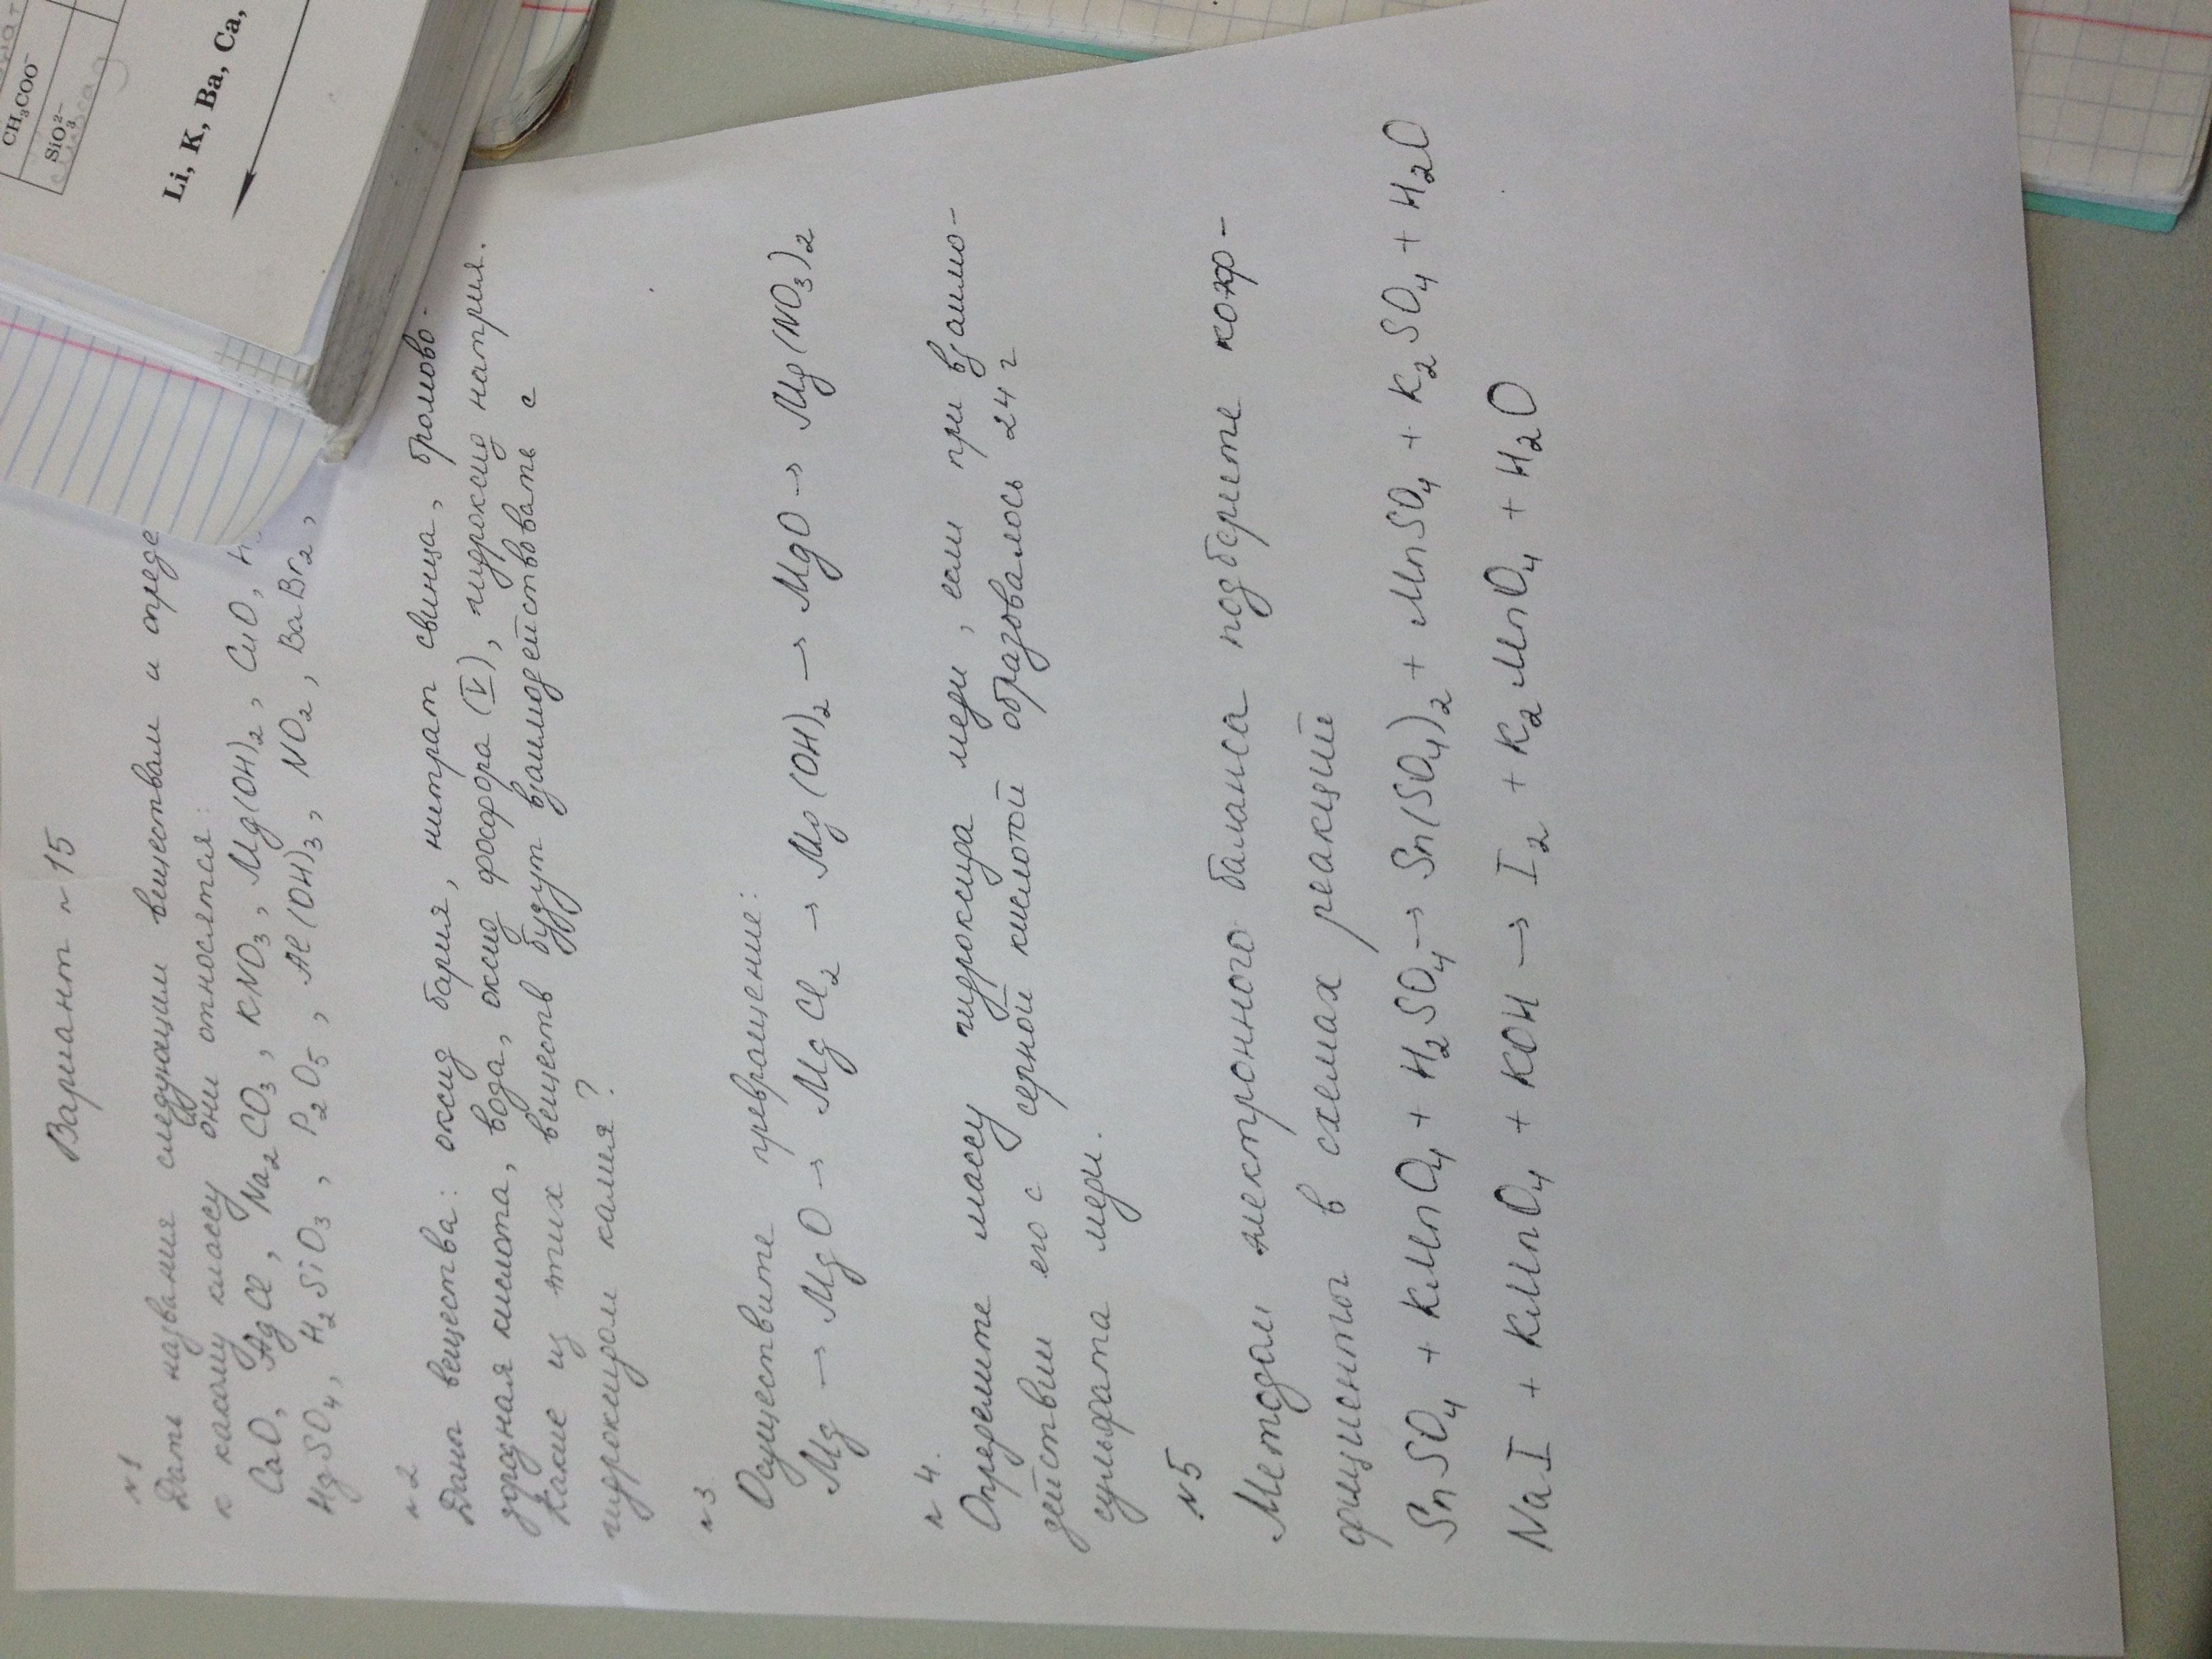 Вариант № 15
№1
Дать названия следующим веществам и опреде
к какому классу они относятся:
CaO, AgCl, Na2CO3, KNO3, Mg(OH)2, CuO,
HgSO4, H2SiO3, P2O5, Al(OH)3, NO2, BaBr2,
№2
Даны вещества: оксид бария, нитрат свинца, бромово-
дородная кислота, вода, оксид фосфора (V), гидроксид натрия.
Какие из этих веществ будут взаимодействовать с
гидроксидом калия?
№3
Осуществите превращение:
Mg → MgO → MgCl2 → Mg(OH)2 → MgO → Mg(NO3)2
№4.
Определите массу гидроксида меди, если при взаимо-
действии его с серной кислотой образовалось 24 г
сульфата меди.
№5
Методом электронного баланса подберите коэф-
фициенты в схемах реакций
SnSO4 + KMnO4 + H2SO4 → Sn(SO4)2 + MnSO4 + K2SO4 + H2O
NaI + KMnO4 + KOH → I2 + K2MnO4 + H2O
CH3COO⁻
SiO3²⁻
Li, K, Ba, Ca,